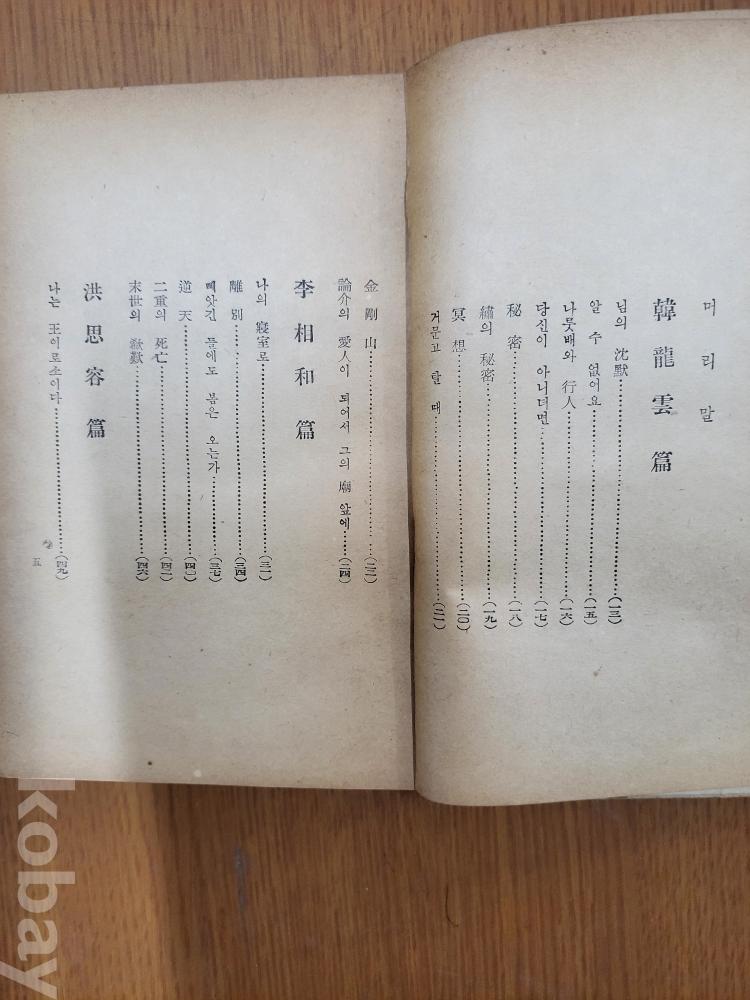 머리말
韓龍雲篇
님의 沈默……(一三)
알 수 없어요……(一五)
나룻배와 行人……(一六)
당신이 아니더면……(一七)
秘密……(一八)
繡의 秘密……(一九)
冥想……(二〇)
거문고 탈 때……(二一)
金剛山……(二二)
論介의 愛人이 되어서 그의 廟 앞에……(二四)
李相和篇
나의 寢室로……(三一)
離別……(三四)
빼앗긴 들에도 봄은 오는가……(三七)
逆天……(四〇)
二重의 死亡……(四二)
末世의 欷歎……(四六)
洪思容篇
나는 王이로소이다……(四九)
五
kobay